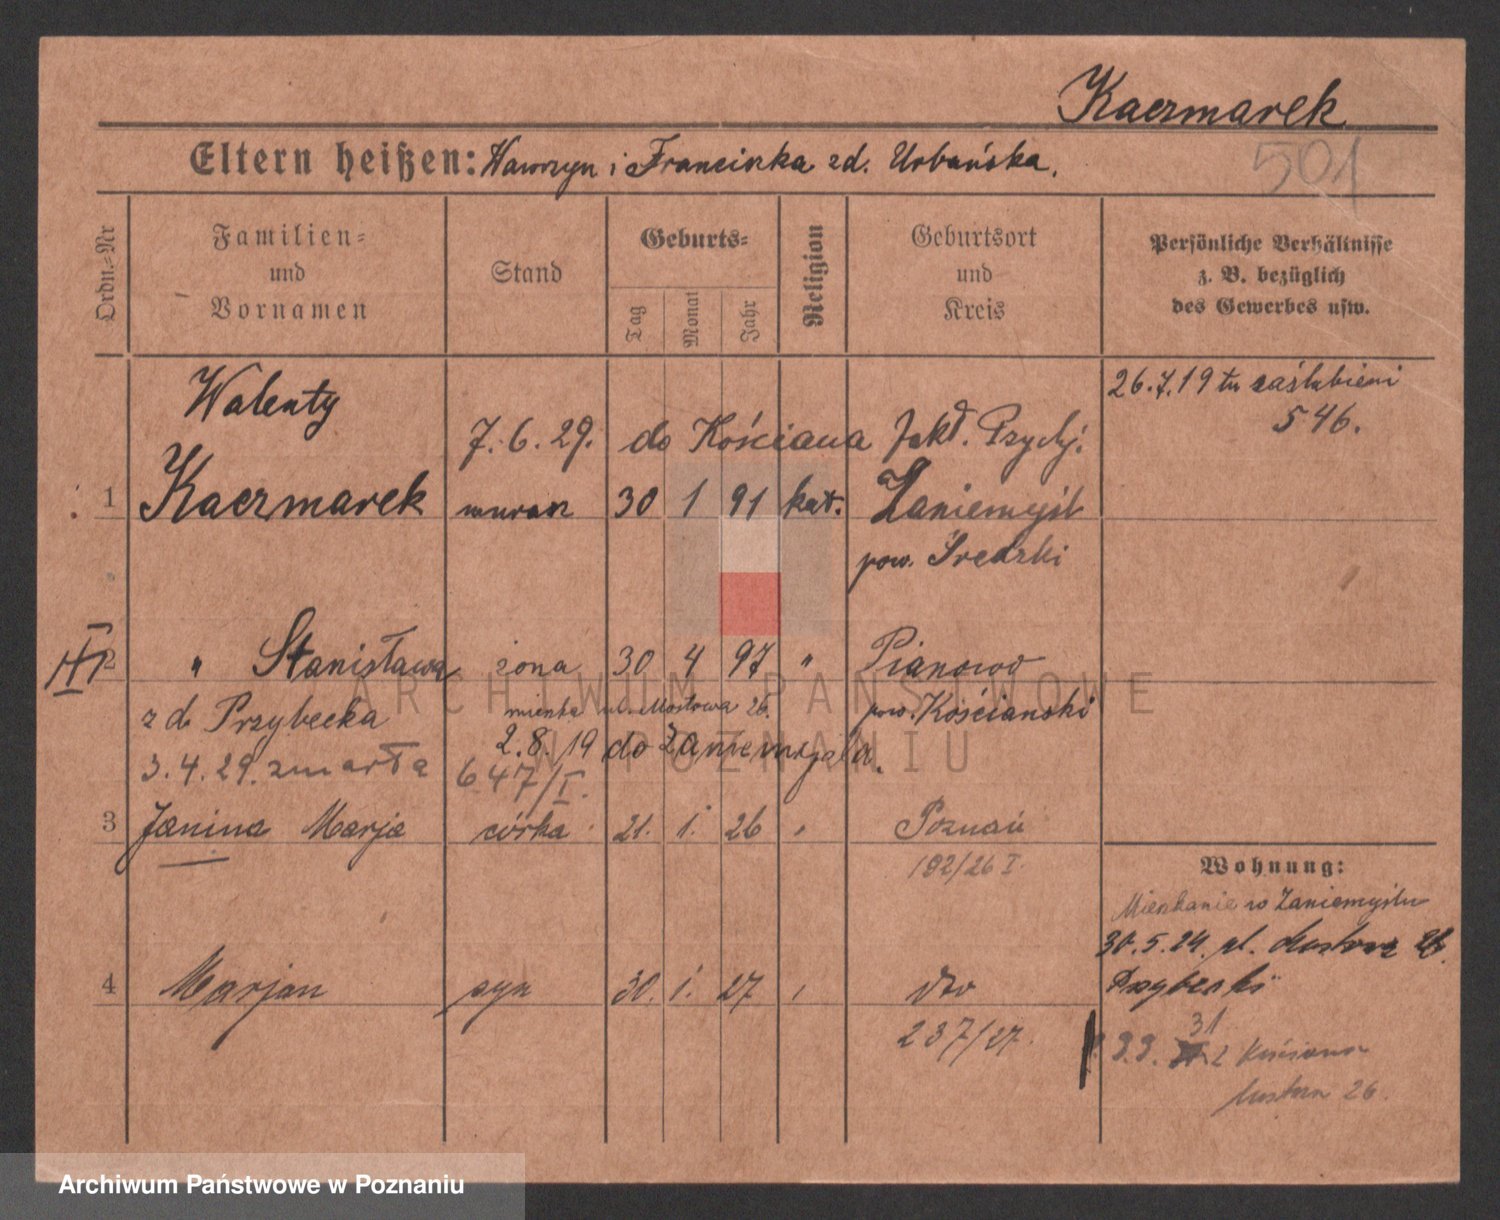 Kaczmarek
501
Eltern heißen: Wawrzyn i Franciszka zd. Urbańska.
Ordn.-Nr
Familien- und Vornamen
Stand
Geburts-
Tag
Monat
Jahr
Religion
Geburtsort und Kreis
Persönliche Verhältnisse
z. B. bezüglich
des Gewerbes usw.
26.7.19 tu zaślubieni
546.
Walenty
7.6.29. do Kościana Zakł. Psych.
1 Kaczmarek murarz 30 1 91 kat. Zaniemyśl
pow. Średzki
2 " Stanisława żona 30 4 97 " Pianowo
z d. Przybecka
mieszka ul. Mostowa 26.
pow. Kościański
2.8.19 do Zaniemyśla.
3.4.29. zmarła 647/I.
3 Janina Marja córka 21. 1. 26 Poznań
192/26 I
Wohnung:
Mieszkanie w Zaniemyślu
30.5.24. ul. Mostowa 26.
4 Marjan syn 30. 1. 27 dto
237/27.
9.9. 31 z Kościana
Mostowa 26.
ARCHIWUM PAŃSTWOWE
W POZNANIU
Archiwum Państwowe w Poznaniu